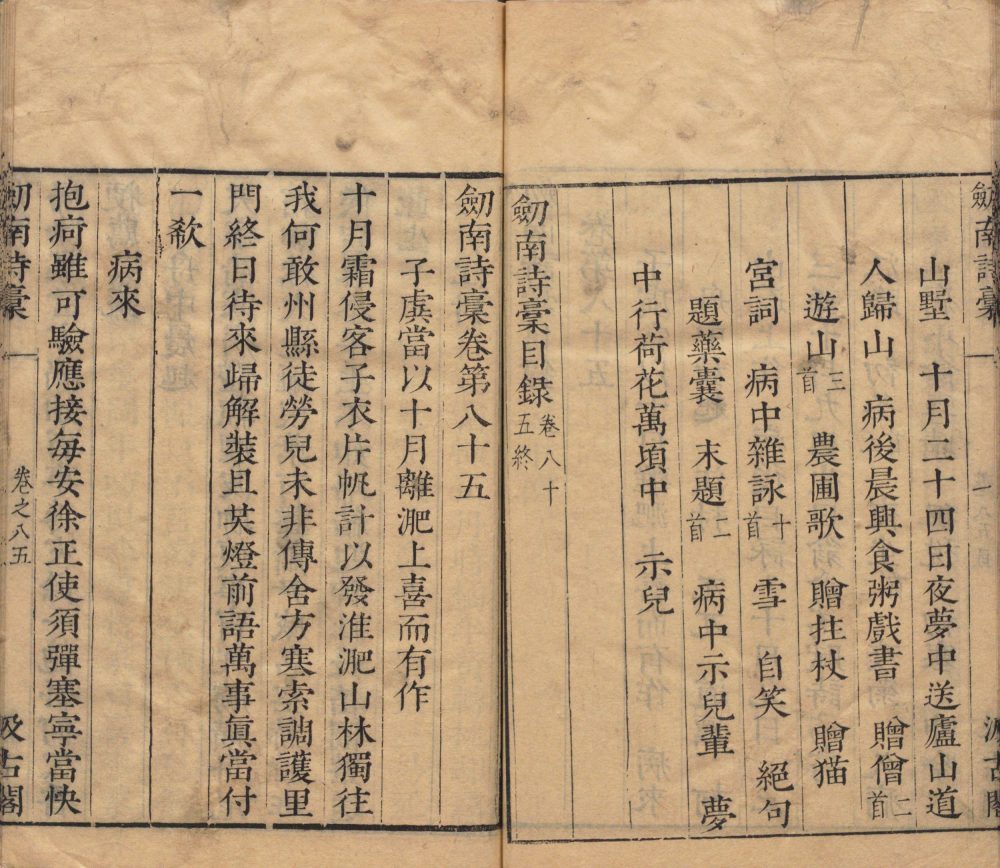 劒南詩稾
一
汲古閣
山墅　十月二十四日夜夢中送廬山道
人歸山　病後晨興食粥戲書　贈僧二首
遊山三首　農圃歌　贈拄杖　贈猫
宮詞　病中雜詠十首　雪　自笑　絕句
題藥囊　末題二首　病中示兒輩　夢
中行荷花萬頃中　示兒
劒南詩稾目錄卷八十五終
劒南詩稾卷第八十五
子虡當以十月離淝上喜而有作
十月霜侵客子衣片帆計以發淮淝山林獨往
我何敢州縣徒勞兒未非傳舍方寒索調護里
門終日待來歸解裝且芖燈前語萬事眞當付
一欷
病來
抱疴雖可驗應接每安徐正使須彈塞寧當快
劒南詩稾
一
卷之八五
汲古閣